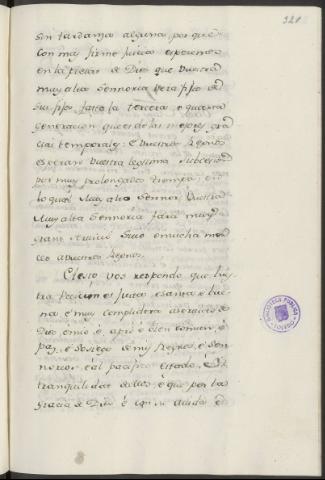 321
sin tardanza alguna, por que
con muy firme fiucia esperamos
en la piedad de Dios que Vuestra
muy alta Sennoria vera fijos de
sus fijos fasta la tercera e quarta
generacion que es de las mejores gra
cias temporales: e Vuestros Regnos
esperan vuestra legitima subcesion
por muy prolongados tiempos, en
lo qual Muy alto Sennor Vuestra
Muy alta Sennoria fara muy
grant servicio suyo e mucha mer
ced a Vuestros Regnos.
A esto vos respondo que
tra Peticion es justa e santa e bue
na e muy complidera a servicio de
Dios e mio, e a pro e bien comun, e
paz, e sosiego de mis Regnos, e Sen
norios, e al pacifico estado, e
tranquilidat dellos, e que por la
gracia de Dios e con su aiuda e
BIBLIOTECA PUBLICA
TOLEDO